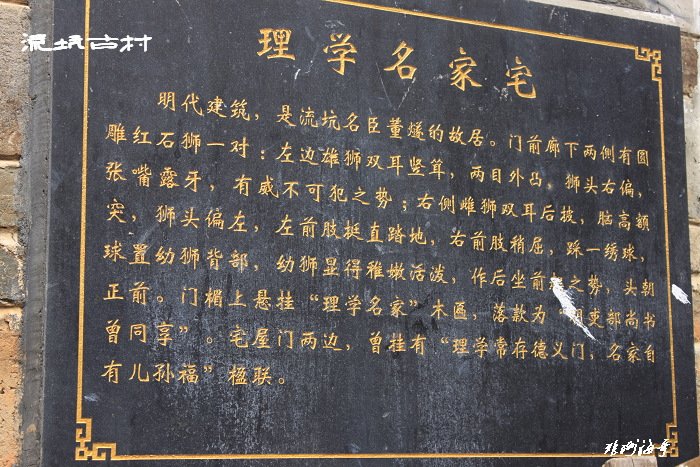 流坑古村
理学名家宅
明代建筑，是流坑名臣董燧的故居。门前廊下两侧有圆
雕红石狮一对：左边雄狮双耳竖耸，两目外凸，狮头右偏，
张嘴露牙，有威不可犯之势；右侧雌狮双耳后披，脑高额
突，狮头偏左，左前肢挺直踏地，右前肢稍屈，踩一绣球，
球置幼狮背部，幼狮显得稚嫩活泼，作后坐前之势，头朝
正前。门楣上悬挂“理学名家”木匾，落款为“吏部尚书
曾同享”。宅屋门两边，曾挂有“理学常存德义门，名家自
有儿孙福”楹联。